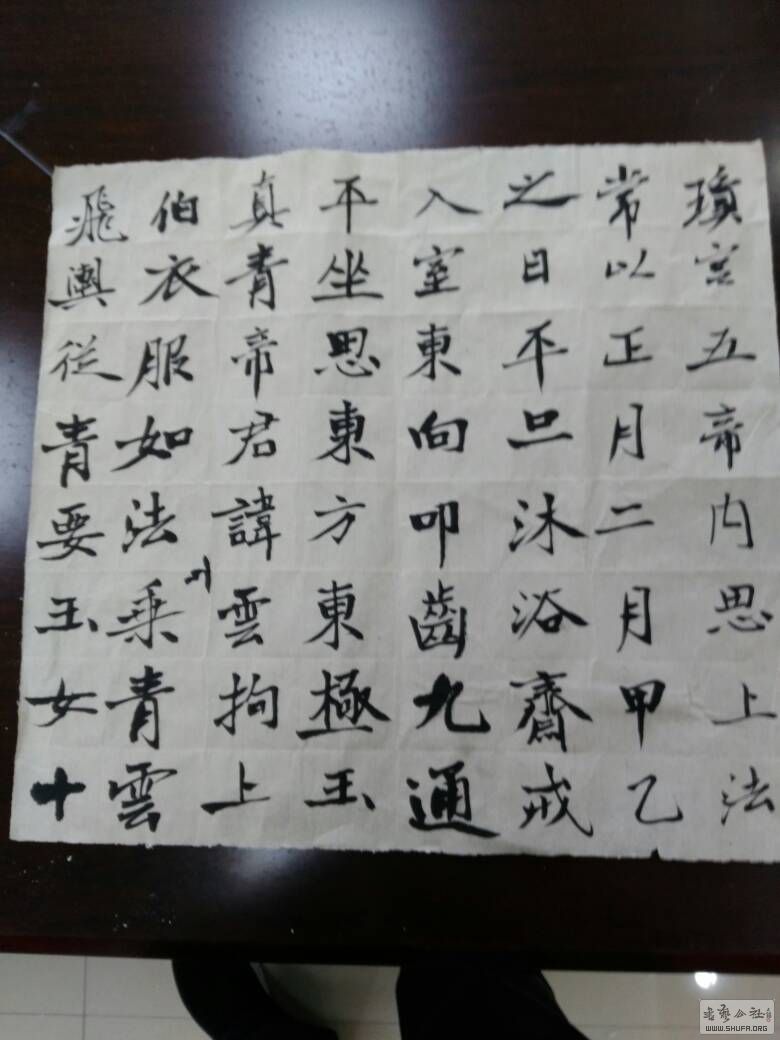 瓊宮五帝内思上法
常以正月二月甲乙
之日平旦沐浴齋戒
入室東向叩齒九通
平坐思東方東極玉
真青帝君諱雲拘上
伯衣服如法乘青雲
飛輿從青要玉女十
書藝公社
WWW.SHUFA.ORG